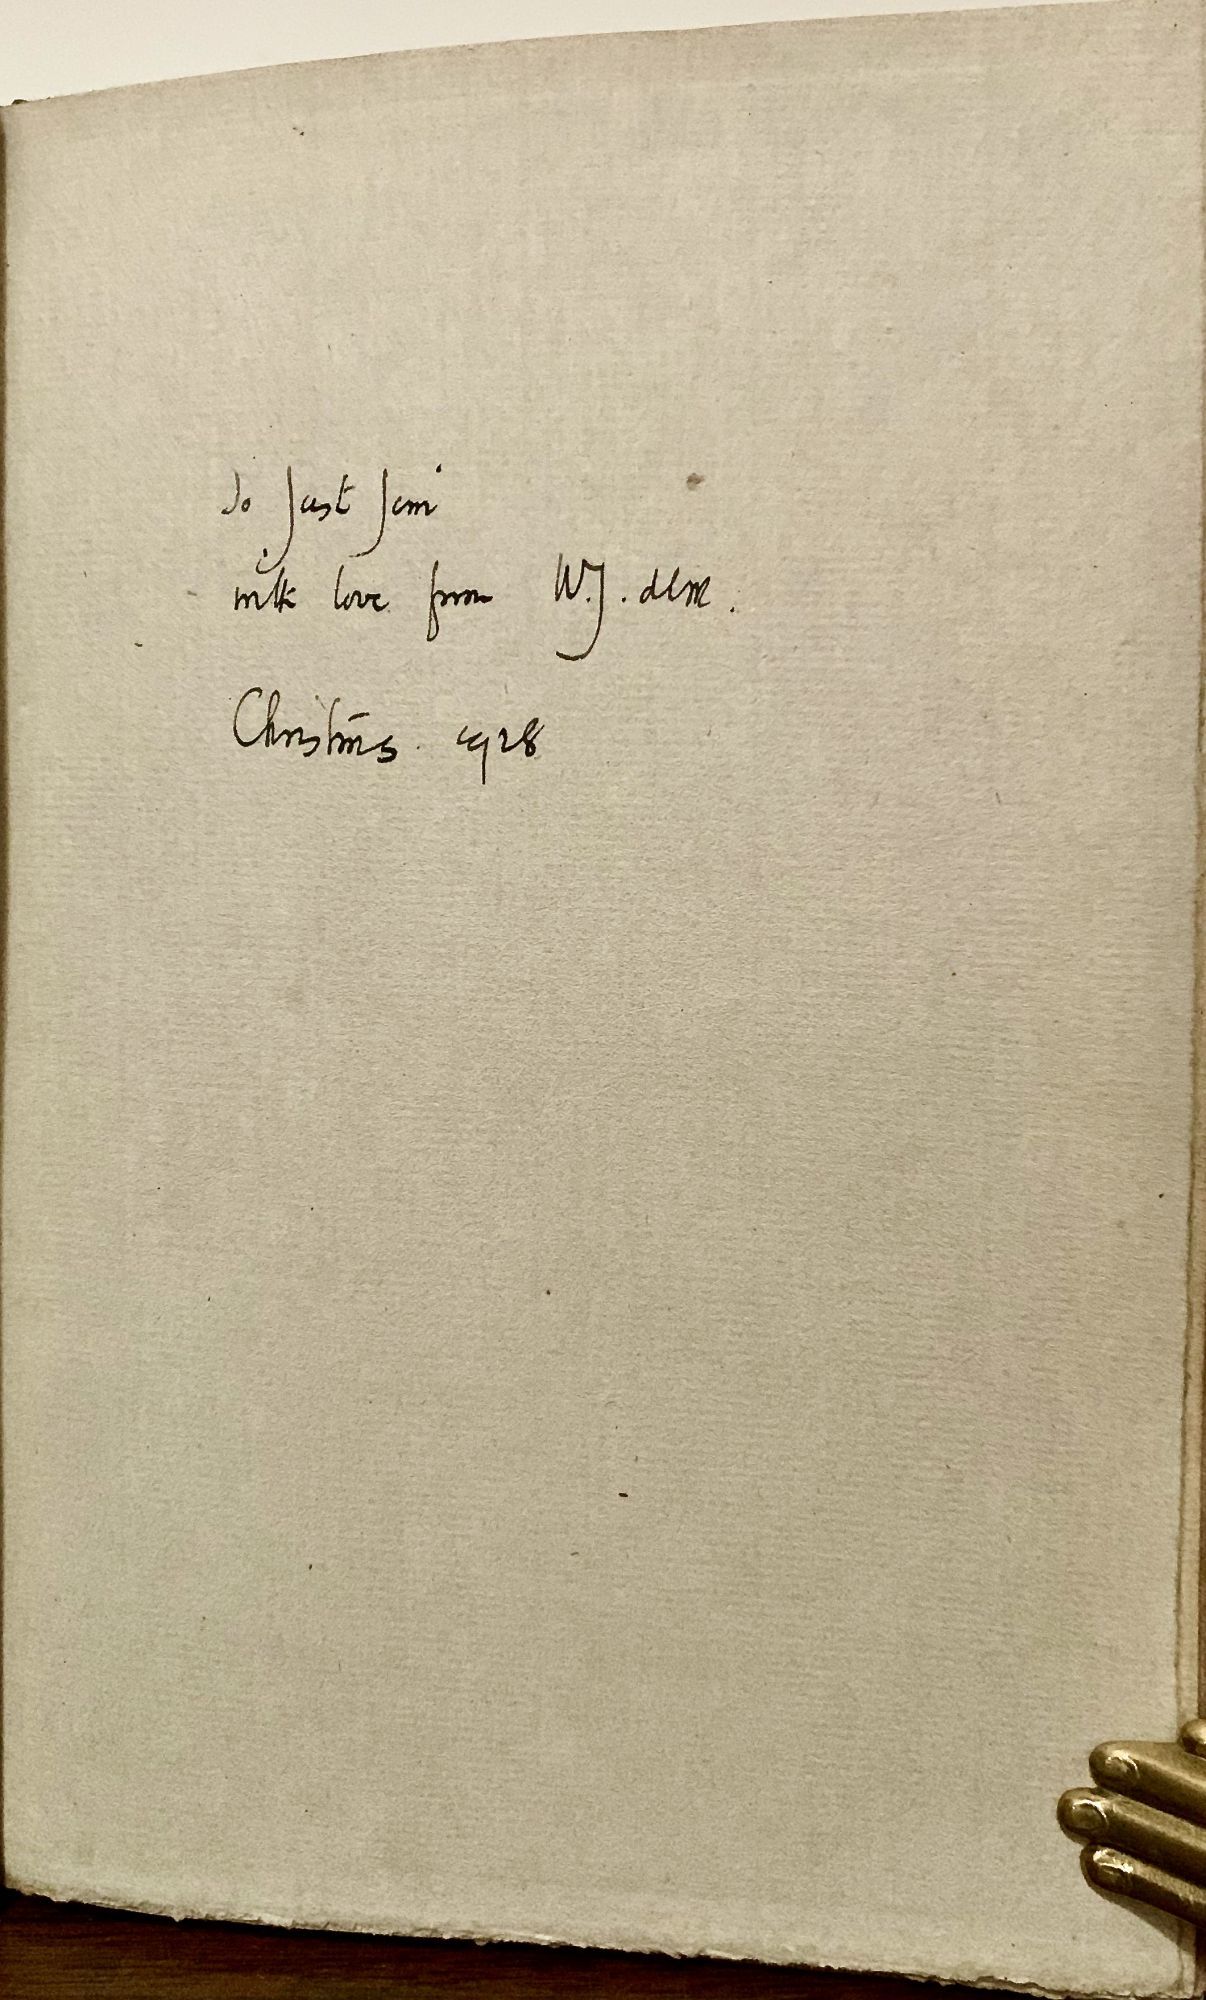 To Just Jim
with love from W.J. dlM.
Christmas 1928